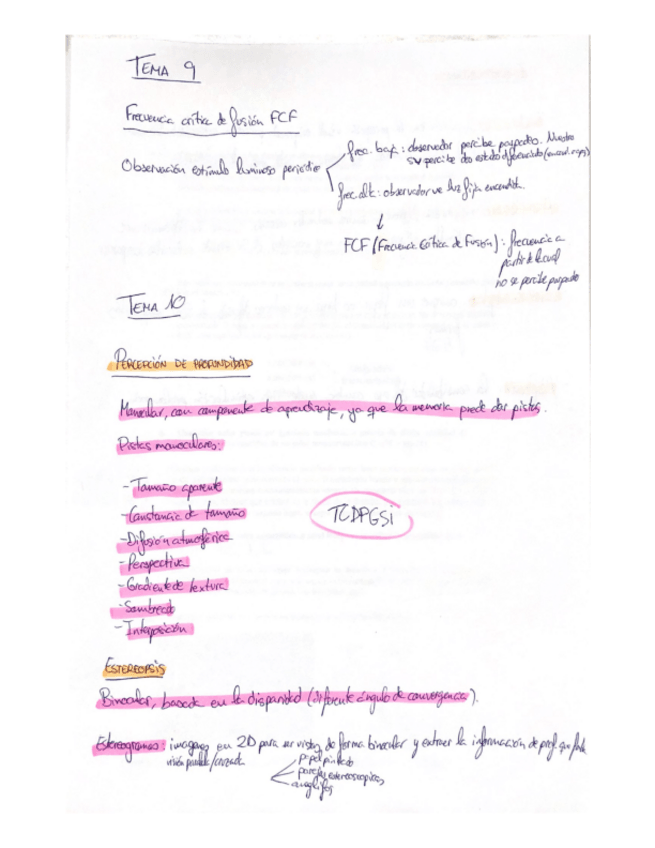 TEMA 9
Frecuencia crítica de fusión FCF
Observación estímulo luminoso periódico
frec. baja: observador percibe parpadeo. Nuestro
SV percibe dos estados diferenciados
frec alta: observador ve luz fija encendida.
↓
FCF (Frecuencia Crítica de Fusión): frecuencia a
partir de la cual
no se percibe parpadeo
TEMA 10
PERCEPCIÓN DE PROFUNDIDAD
Monocular, con componente de aprendizaje, ya que la memoria puede dar pistas.
Pistas monoculares:
- Tamaño aparente
- Constancia de tamaño
- Difusión atmosférica
- Perspectiva
- Gradiente de textura
- Sombreado
- Interposición
TCDPGSi
ESTEREOPSIS
Binocular, basada en la disparidad (diferente ángulo de convergencia).
Estereogramas: imágenes en 2D para ser vistas de forma binocular y extraer la información de prof. que
visión paralela/cruzada
papel pintado
pareja estereoscópica
anaglifos